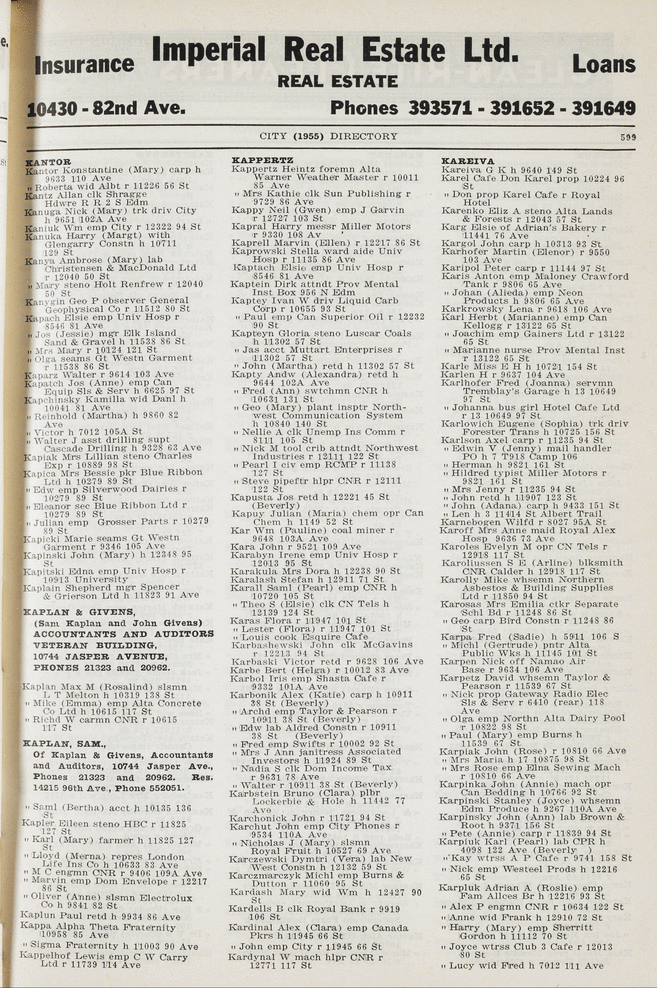 Insurance Imperial Real Estate Ltd. Loans
REAL ESTATE
10430 - 82nd Ave. Phones 393571 - 391652 - 391649
CITY (1955) DIRECTORY 599
KANTOR
Kantor Konstantine (Mary) carp h
9633 110 Ave
" Roberta wid Albt r 11226 56 St
Kantz Allan clk Shragge
Hdwre R R 2 S Edm
Kanuga Nick (Mary) trk driv City
h 9651 102A Ave
Kaniuk Wm emp City r 12322 94 St
Kanuka Harry (Margt) with
Glengarry Constn h 10711
129 St
Kanya Ambrose (Mary) lab
Christensen & MacDonald Ltd
r 12040 50 St
" Mary steno Holt Renfrew r 12040
50 St
Kanygin Geo P observer General
Geophysical Co r 11512 80 St
Kapach Elsie emp Univ Hosp r
8546 81 Ave
" Jos (Jessie) mgr Elk Island
Sand & Gravel h 11538 86 St
" Mrs Mary r 10124 121 St
" Olga seams Gt Westn Garment
r 11538 86 St
Kaparz Walter r 9614 103 Ave
Kapatch Jos (Anne) emp Can
Equip Sls & Serv h 6625 97 St
Kapchinsky Kamilla wid Danl h
10041 81 Ave
" Reinhold (Martha) h 9860 82
Ave
" Victor h 7012 105A St
" Walter J asst drilling supt
Cascade Drilling h 9328 63 Ave
Kapiak Mrs Lillian steno Charles
Exp r 10889 98 St
Kapica Mrs Bessie pkr Blue Ribbon
Ltd h 10279 89 St
" Edw emp Silverwood Dairies r
10279 89 St
" Eleanor sec Blue Ribbon Ltd r
10279 89 St
" Julian emp Grosser Parts r 10279
89 St
Kapicki Marie seams Gt Westn
Garment r 9346 105 Ave
Kapinski John (Mary) h 12348 95
St
Kapitski Edna emp Univ Hosp r
10913 University
Kaplain Shepherd mgr Spencer
& Grierson Ltd h 11823 91 Ave
KAPLAN & GIVENS,
(Sam Kaplan and John Givens)
ACCOUNTANTS AND AUDITORS
VETERAN BUILDING,
10744 JASPER AVENUE,
PHONES 21323 and 20962.
Kaplan Max M (Rosalind) slsmn
L T Melton h 10319 138 St
" Mike (Emma) emp Alta Concrete
Co Ltd h 10615 117 St
" Richd W carmn CNR r 10615
117 St
KAPLAN, SAM.,
Of Kaplan & Givens, Accountants
and Auditors, 10744 Jasper Ave.,
Phones 21323 and 20962. Res.
14215 96th Ave., Phone 552051.
" Saml (Bertha) acct h 10135 136
St
Kapler Eileen steno HBC r 11825
127 St
" Karl (Mary) farmer h 11825 127
St
" Lloyd (Merna) repres London
Life Ins Co h 10633 83 Ave
" M C engmn CNR r 9406 109A Ave
" Marvin emp Dom Envelope r 12217
86 St
" Oliver (Anne) slsmn Electrolux
Co h 9841 82 St
Kaplun Paul retd h 9934 86 Ave
Kappa Alpha Theta Fraternity
10958 85 Ave
" Sigma Fraternity h 11003 90 Ave
Kappelhof Lewis emp C W Carry
Ltd r 11739 114 Ave
KAPPERTZ
Kappertz Heintz foremn Alta
Warner Weather Master r 10011
85 Ave
" Mrs Kathie clk Sun Publishing r
9729 86 Ave
Kappy Neil (Gwen) emp J Garvin
r 12727 103 St
Kapral Harry messr Miller Motors
r 9330 108 Av
Kaprell Marvin (Ellen) r 12217 86 St
Kaprowski Stella ward aide Univ
Hosp r 11135 86 Ave
Kaptach Elsie emp Univ Hosp r
8546 81 Ave
Kaptein Dirk attndt Prov Mental
Inst Box 956 N Edm
Kaptey Ivan W driv Liquid Carb
Corp r 10655 93 St
" Paul emp Can Superior Oil r 12232
90 St
Kapteyn Gloria steno Luscar Coals
h 11302 57 St
" Jas acct Muttart Enterprises r
11302 57 St
" John (Martha) retd h 11302 57 St
Kapty Andw (Alexandra) retd h
9644 102A Ave
" Fred (Ann) swtchmn CNR h
10631 131 St
" Geo (Mary) plant insptr North-
west Communication System
h 10840 140 St
" Nellie A clk Unemp Ins Comm r
8111 105 St
" Nick M tool crib attndt Northwest
Industries r 12111 122 St
" Pearl I civ emp RCMP r 11138
127 St
" Steve pipeftr hlpr CNR r 12111
122 St
Kapusta Jos retd h 12221 45 St
(Beverly)
Kapuy Julian (Maria) chem opr Can
Chem h 1149 52 St
Kar Wm (Pauline) coal miner r
9648 103A Ave
Kara John r 9521 109 Ave
Karabyn Irene emp Univ Hosp r
12013 95 St
Karakula Mrs Dora h 12238 90 St
Karalash Stefan h 12911 71 St
Karall Saml (Pearl) emp CNR h
10720 105 St
" Theo S (Elsie) clk CN Tels h
12139 124 St
Karas Flora r 11947 101 St
" Lester (Flora) r 11947 101 St
" Louis cook Esquire Cafe
Karbashewski John clk McGavins
r 12213 94 St
Karbaski Victor retd r 9628 106 Ave
Karbe Bert (Helga) r 10012 83 Ave
Karbol Iris emp Shasta Cafe r
9332 101A Ave
Karbonik Alex (Katie) carp h 10911
38 St (Beverly)
" Archd emp Taylor & Pearson r
10911 38 St (Beverly)
" Edw lab Aldred Constn r 10911
38 St (Beverly)
" Fred emp Swifts r 10002 92 St
" Mrs J Ann janitress Associated
Investors h 11924 89 St
" Nadia S clk Dom Income Tax
r 9631 78 Ave
" Walter r 10911 38 St (Beverly)
Karbstein Bruno (Clara) plbr
Lockerbie & Hole h 11442 77
Ave
Karchonick John r 11721 94 St
Karchut John emp City Phones r
9534 110A Ave
" Nicholas J (Mary) slsmn
Royal Fruit h 10527 69 Ave
Karczewski Dymtri (Vera) lab New
West Constn h 12132 59 St
Karczmarczyk Michl emp Burns &
Dutton r 11060 95 St
Kardash Mary wid Wm h 12427 90
St
Kardells B clk Royal Bank r 9919
106 St
Kardinal Alex (Clara) emp Canada
Pkrs h 11945 66 St
" John emp City r 11945 66 St
Kardynal W mach hlpr CNR r
12771 117 St
KAREIVA
Kareiva G K h 9640 149 St
Karel Cafe Don Karel prop 10224 96
St
" Don prop Karel Cafe r Royal
Hotel
Karenko Eliz A steno Alta Lands
& Forests r 12043 57 St
Karg Elsie of Adrian's Bakery r
11441 76 Ave
Kargol John carp h 10313 93 St
Karhofer Martin (Elenor) r 9550
103 Ave
Karipol Peter carp r 11144 97 St
Karis Anton emp Maloney Crawford
Tank r 9806 65 Ave
" Johan (Alieda) emp Neon
Products h 9806 65 Ave
Karkrowsky Lena r 9618 106 Ave
Karl Herbt (Marianne) emp Can
Kellogg r 13122 65 St
" Joachim emp Gainers Ltd r 13122
65 St
" Marianne nurse Prov Mental Inst
r 13122 65 St
Karle Miss E H h 10721 154 St
Karlen H r 9637 104 Ave
Karlhofer Fred (Joanna) servmn
Tremblay's Garage h 13 10649
97 St
" Johanna bus girl Hotel Cafe Ltd
r 13 10649 97 St
Karlowich Eugene (Sophia) trk driv
Forester Trans h 10725 156 St
Karlson Axel carp r 11235 94 St
" Edwin V (Jenny) mail handler
PO h 7 T918 Camp 106
" Herman h 9821 161 St
" Hildred typist Miller Motors r
9821 161 St
" Mrs Jenny r 11235 94 St
" John retd h 11907 123 St
" John (Adana) carp h 9433 151 St
" Len h 3 11414 St Albert Trail
Karnebogen Wilfd r 8027 95A St
Karoff Mrs Anne maid Royal Alex
Hosp 9636 73 Ave
Karoles Evelyn M opr CN Tels r
12918 117 St
Karoliussen S E (Arline) blksmith
CNR Calder h 12918 117 St
Karolly Mike whsemn Northern
Asbestos & Building Supplies
Ltd r 11850 94 St
Karosas Mrs Emilia ctkr Separate
Schl Bd r 11248 86 St
" Geo carp Bird Constn r 11248 86
St
Karpa Fred (Sadie) h 5911 106 S
" Michl (Gertrude) pntr Alta
Public Wks h 11145 101 St
Karpen Nick off Namao Air
Base r 9634 106 Ave
Karpetz David whsemn Taylor &
Pearson r 11539 67 St
" Nick prop Gateway Radio Elec
Sls & Serv r 6410 (rear) 118
Ave
" Olga emp Northn Alta Dairy Pool
r 10822 98 St
" Paul (Mary) emp Burns h
11539 67 St
Karpiak John (Rose) r 10810 66 Ave
" Mrs Maria h 17 10875 98 St
" Mrs Rose emp Elna Sewing Mach
r 10810 66 Ave
Karpinka John (Annie) mach opr
Can Bedding h 10766 92 St
Karpinski Stanley (Joyce) whsemn
Edm Produce h 9267 110A Ave
Karpinsky John (Ann) lab Brown &
Root h 9371 156 St
" Pete (Annie) carp r 11839 94 St
Karpiuk Karl (Pearl) lab CPR h
4098 122 Ave (Beverly )
" Kay wtrss A P Cafe r 9741 158 St
" Nick emp Westeel Prods h 12216
65 St
Karpluk Adrian A (Roslie) emp
Fam Allces Br h 12216 93 St
" Alex P engmn CNR r 10634 122 St
" Anne wid Frank h 12910 72 St
" Harry (Mary) emp Sherritt
Gordon h 11112 70 St
" Joyce wtrss Club 3 Cafe r 12013
80 St
" Lucy wid Fred h 7012 111 Ave